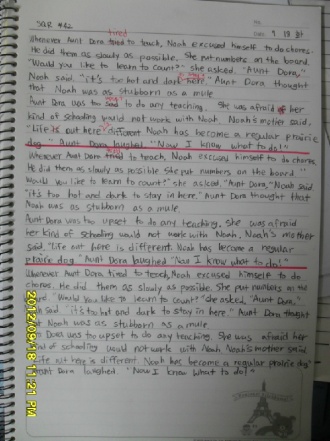 SQR #62
9 18
tired
Whenever Aunt Dora tried to teach, Noah excused himself to do chores.
He did them as slowly as possible. She put numbers on the board.
"Would you like to learn to count?" she asked. "Aunt Dora,"
Noah said. "it's too hot and dark here." Aunt Dora thought
that Noah was as stubborn as a mule
Aunt Dora was too to do any teaching. She was afraid her
kind of schooling would not work with Noah. Noah's mother said.
"Life out here is different Noah has become a regular prairie
dog" Aunt Dora laughed "Now I know what to do!"
Whenever Aunt Dora to teach, Noah excused himself to do chores.
He did them as slowly as possible She put numbers on the board "
Would you like to learn to count?" she asked, "Aunt Dora," Noah said
"it's too hot and dark to stay in here." Aunt Dora thought that
Noah was as stubborn as a mule
Aunt Dora was too upset to do any teaching. She was afraid
her kind of schooling would not work with Noah, Noah's mother
said. "Life out here is different Noah has become a regular
prairie dog" Aunt Dora laughed "Now I know what to do!"
Whenever Aunt Dora, tired to teach, Noah excused himself to do
chores. He did them as slowly as possible. She put numbers on the
"Would you like to learn to count?" she asked, "Aunt Dora,"
said "it's too hot and dark to stay in here" Aunt Dora thought
Noah was as stubborn as a mule
Dora was too upset to do any teaching. She was afraid her
kind of schooling would not work with Noah Noah's mother said
"Life out here is different. Noah has become a regular prairie dog"
Aunt Dora laughed. "Now I know what to do!"
2012/09/18 11:21 PM